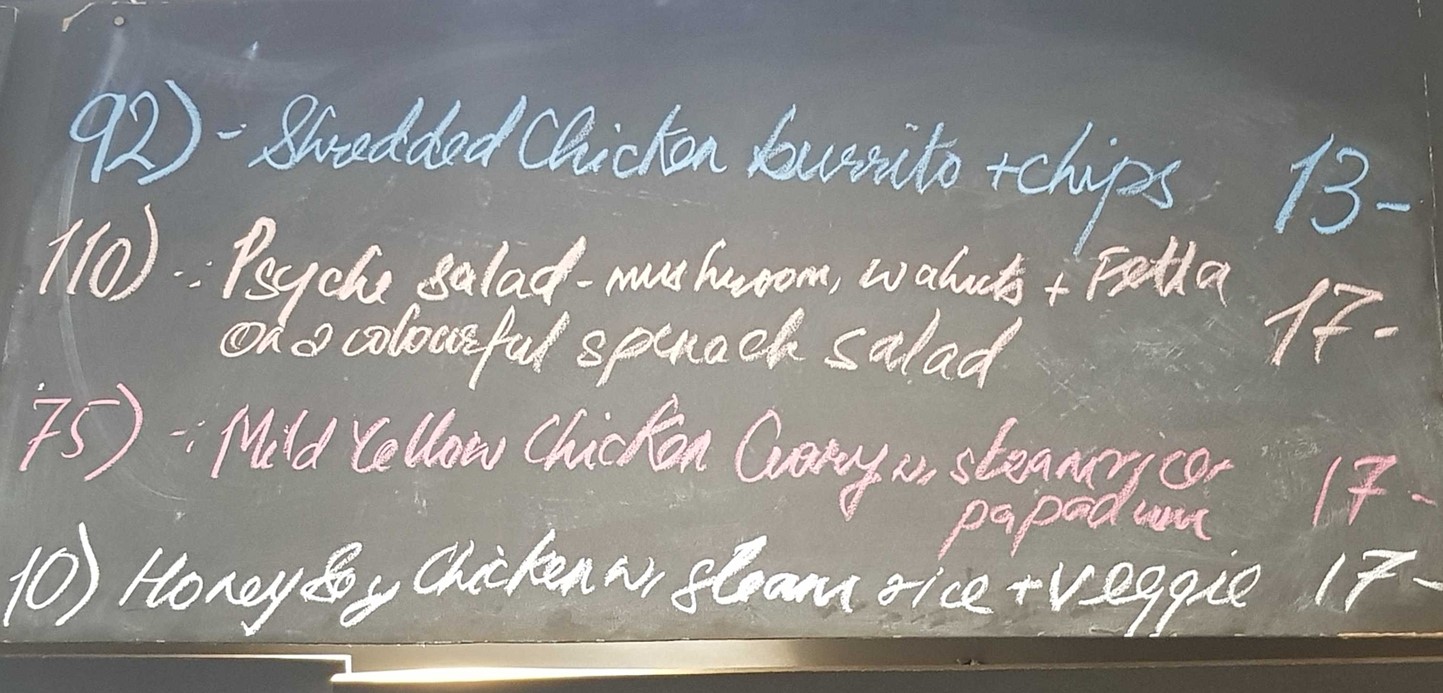 92) - Shredded Chicken burrito + chips 13-
110) -: Psyche salad - mushroom, walnuts + Fetta
on a colourful spinach salad 17-
75) -: Mild Yellow Chicken Curry w, steam rice 17-
papadum
10) Honey Soy Chicken w, steam rice + veggie 17-